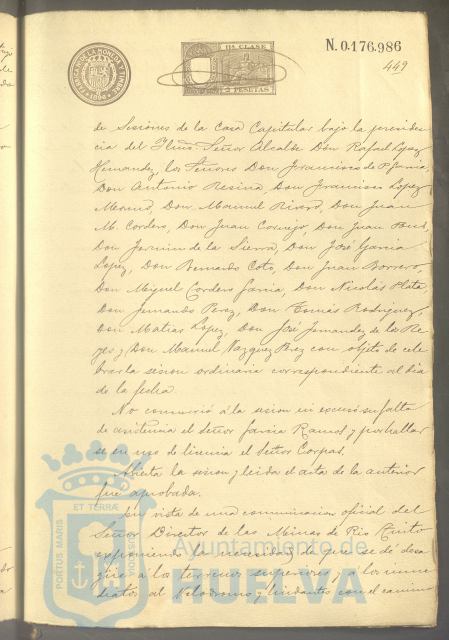 FABRICA NACIONAL DE LA MONEDA Y TIMBRE
1896
11ª CLASE
2 PESETAS
N. 0.176.986
449
de Sesiones de la Casa Capitular bajo la presiden
cia del Iltmo. Señor Alcalde Don Rafael Lopez
Hernandez, los Señores Don Francisco de P. Garcia,
Don Antonio Resina, Don Francisco Lopez
Don Manuel Don Juan
M. Cordero, Don Juan Cornejo, Don Juan
Don Fermin de la Sierra, Don José Garcia
Lopez, Don Bernardo Coto, Don Juan Borrero,
Don Miguel Cordero Garcia, Don Nicolás Plata,
Don Fernando Perez, Don Tomás Rodriguez,
Don Matias Lopez, Don José Fernandez de los Re
yes y Don Manuel Vazquez Perez con objeto de cele
brar la sesion ordinaria correspondiente al dia
de la fecha.
No concurrió á la sesion ni excusó su falta
de asistencia el señor Garcia Ramos y por hallar
se en uso de licencia el Señor Corpas.
Abierta la sesion y leida el acta de la anterior
fué aprobada.
En vista de una comunicacion oficial del
Señor Director de las Minas de Rio Tinto
exponiendo la necesidad de que se dé desa
güe á los terrenos superiores y a los inme
diatos al Velodromo y lindantes con el camino
PORTUS MARIS
ET TERRÆ
CUSTODIA
Ayuntamiento de
HUELVA